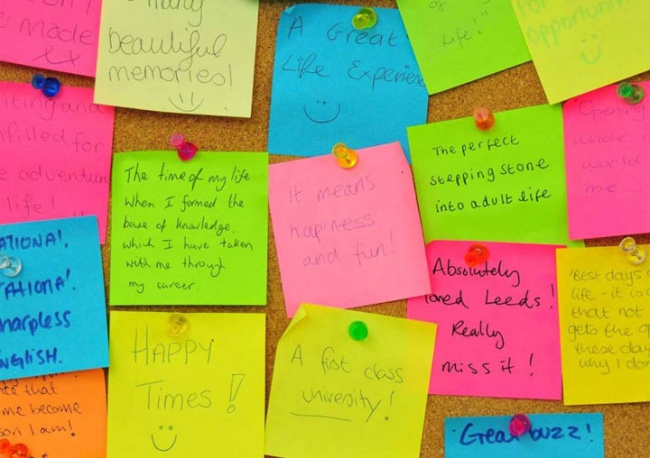 made
many
beautiful
memories!
A Great
Life Experience
of
life!
for
opportunity
iting and
fulfilled for
e adventure
life!
The time of my life
when I formed the
base of knowledge,
which I have taken
with me through
my career.
It means
happiness
and fun!
The perfect
stepping stone
into adult life
Opening
whole
world
me....
ATIONA!,
ATIONA!
harpless
NGLISH.
Absolutely
loved Leeds!
Really
miss it!
'Best days
life - it is
that not
gets the op
these days
why I don
HAPPY
Times!
A first class
university!
that
me become
son I am!
Great buzz!